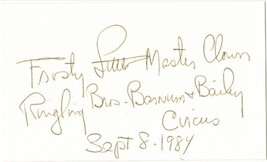 Frosty Little Master Clown
Ringling Bros - Barnum & Bailey
Circus
Sept 8 - 1984